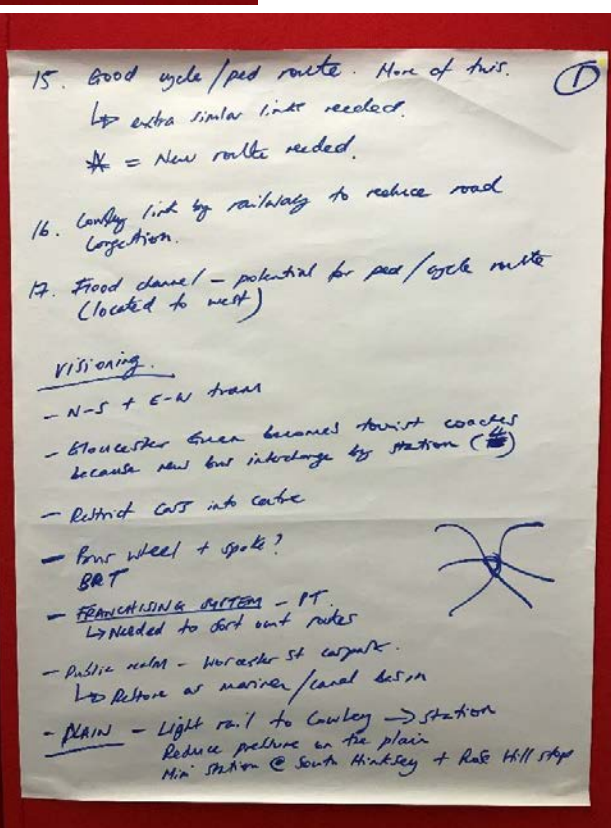 ①
15. Good cycle/ped route. More of this.
↳ extra similar links needed.
* = New route needed.
16. Cowley link by railway to reduce road
congestion.
17. Flood channel - potential for ped/cycle route
(located to west)
Visioning.
- N-S + E-W tram
- Gloucester Green becomes tourist coaches
because new bus interchange by station (4)
- Restrict cars into centre
- Bus wheel + spoke?
BRT
- FRANCHISING SYSTEM - PT.
↳ Needed to sort out routes
- Public realm - Worcester St carpark.
↳ Restore as mariner/canal basin
- PLAIN - Light rail to Cowley → station
Reduce pressure on the plain
Mini station @ South Hinksey + Rose Hill stop